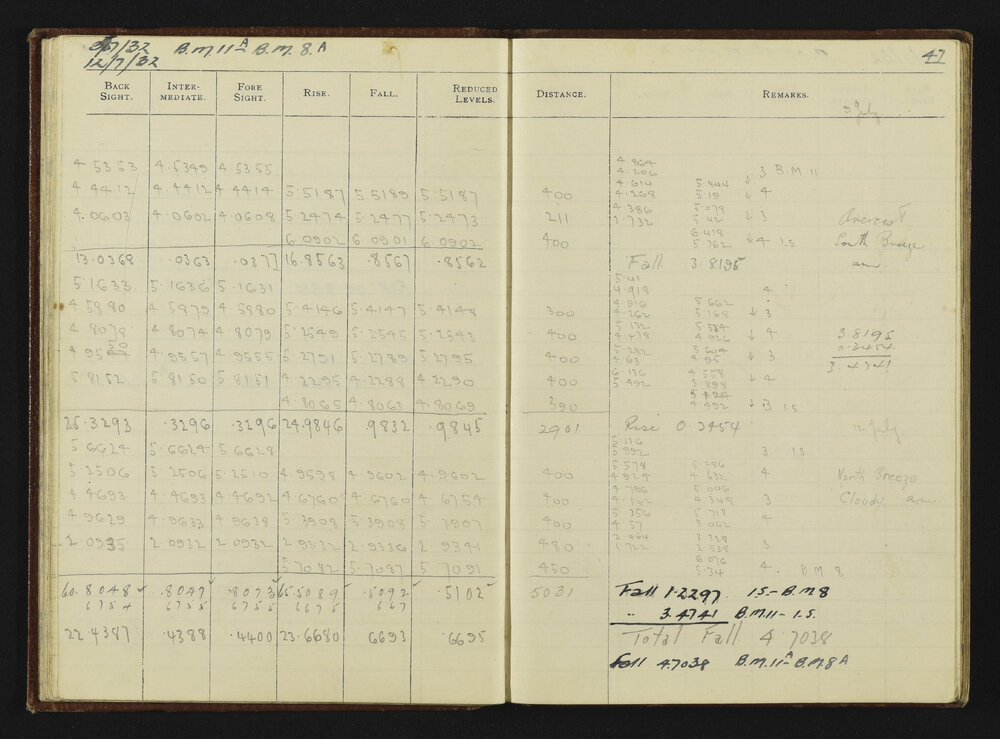 9/7/32 B.M.11A B.M.8.A
12/7/32
47
BACK SIGHT. INTER-MEDIATE. FORE SIGHT. RISE. FALL. REDUCED LEVELS. DISTANCE. REMARKS.
9 July
4.5353 4.5349 4.5355 4.864
4.206 3 B.M 11
4.4412 4.4412 4.4414 5.5187 5.5189 5.5187 400 4.614 5.844 ↓ 4
4.268 5.19
4.0603 4.0602 4.0608 5.2474 5.2477 5.2473 211 4.386 5.078 ↓ 3 Overcast
3.732 5.42
6.0902 6.0901 6.0902 400 6.418 ↓ 4 1.S South Breeze
5.762
13.0368 .0363 .0377 16.8563 .8567 .8562 Fall 3.8195 am
5.1633 5.1636 5.1631 5.41
4.918 4
4.5880 4.5879 4.5880 5.4146 5.4147 5.4148 300 4.916 5.662 ↓ 3
4.262 5.168
4.8078 4.8074 4.8079 5.2549 5.2545 5.2543 400 5.132 5.584 ↓ 4 3.8195
4.478 4.926 0.3454
4.9550 4.9557 4.9555 5.2791 5.2789 5.2795 400 5.282 5.604 ↓ 3 3.4741
4.63 4.95
5.8152 5.8150 5.8151 4.2295 4.2288 4.2290 400 6.136 4.558 ↓ 4
5.492 3.898
4.8065 4.8063 4.8069 390 5.124 ↓ 3 1S
4.492
25.3293 .3296 .3296 24.9846 .9832 .9845 2901 Rise 0.3454 12 July
5.6624 5.6624 5.6628 5.336
5.992 3 1S
5.2506 5.2506 5.2510 4.9598 4.9602 4.9602 400 5.578 5.286 4 North Breeze
4.924 4.632
4.4693 4.4693 4.4692 4.6760 4.6760 4.6754 400 4.796 5.006 3 Cloudy, am
4.142 4.348
4.9629 4.9633 4.9638 5.3908 5.3908 5.3907 400 5.356 5.718 4
4.57 5.062
2.0935 2.0932 2.0932 2.9332 2.9336 2.9341 480 2.464 3.328 3
1.722 2.538
5.7082 5.7087 5.7091 450 6.076 4. B M 8
5.34
60.8048 .8047 .8073 65.5089 .5092 .5102 5031 Fall 1.2297 1S-B.M 8
6754 6755 6755 6675 667 " 3.4741 B.M.11-1.S.
22.4387 .4388 .4400 23.6680 6693 .6695 Total Fall 4.7038
Fall 4.7038 B.M.11A-B.M.8A